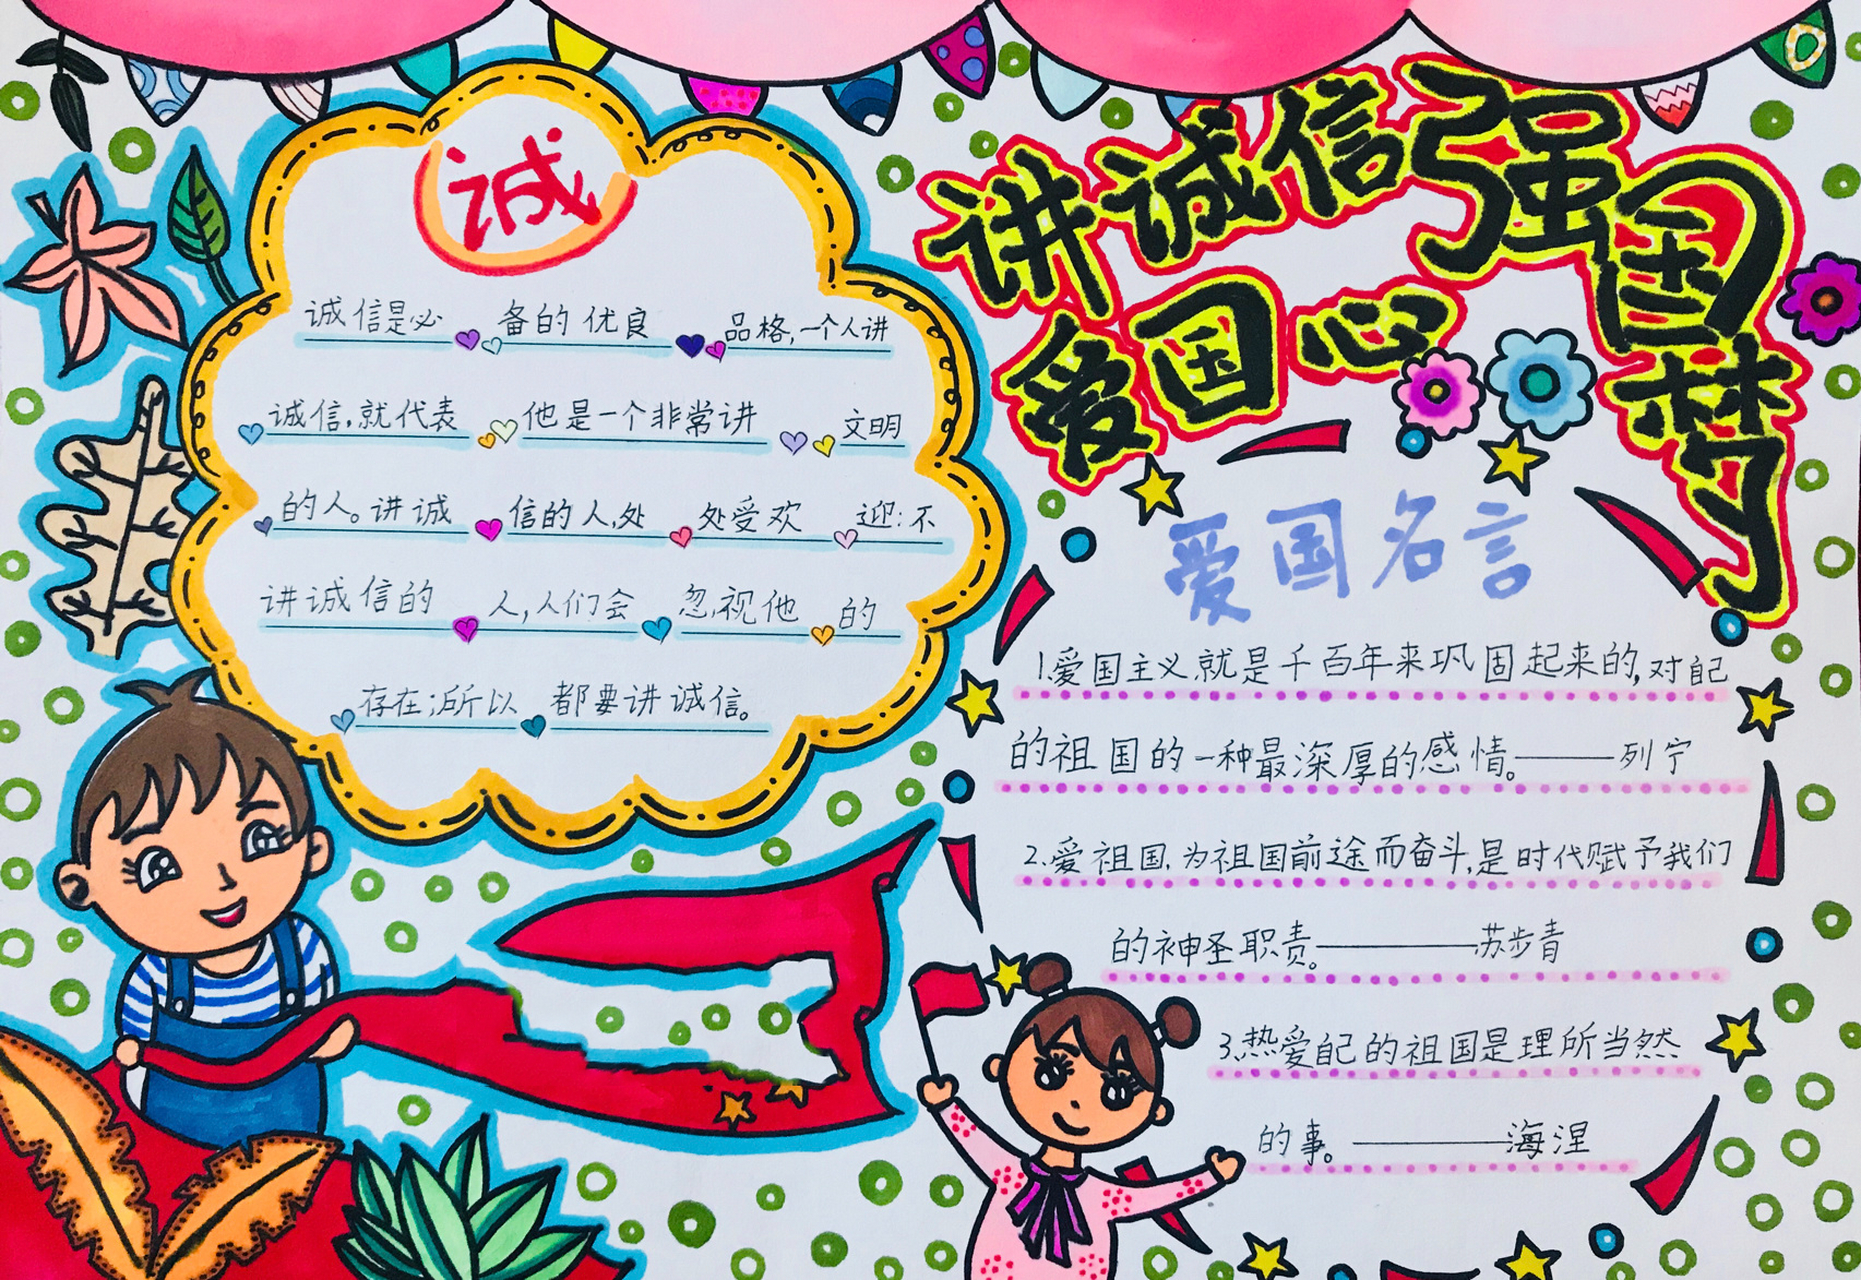 讲诚信强国梦
爱国心
诚
诚信是必备的优良品格,一个人讲
诚信,就代表他是一个非常讲文明
的人。讲诚信的人,处处受欢迎:不
讲诚信的人,人们会忽视他的
存在;所以都要讲诚信。
爱国名言
1.爱国主义就是千百年来巩固起来的,对自己
的祖国的一种最深厚的感情。——列宁
2.爱祖国,为祖国前途而奋斗,是时代赋予我们
的神圣职责。——苏步青
3.热爱自己的祖国是理所当然
的事。——海涅